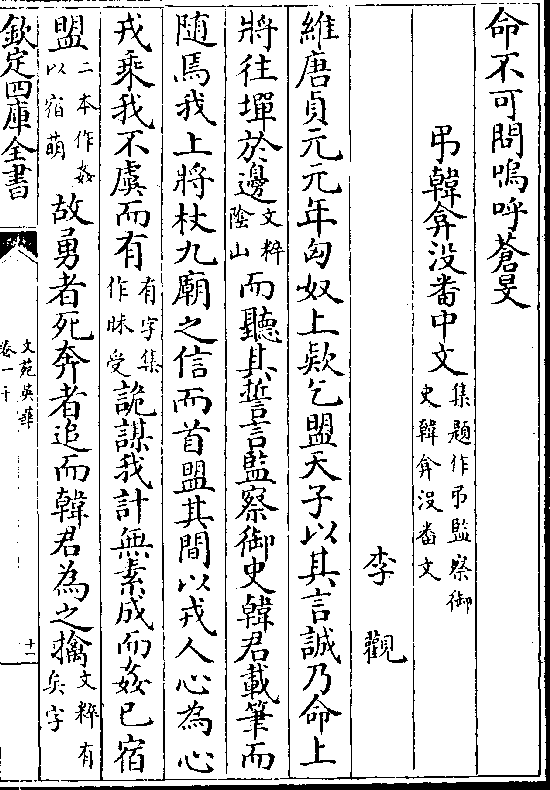 命不可問嗚呼蒼旻
弔韓弇没番中文集題作弔監察御史韓弇没番文
李觀
維唐貞元元年匈奴上欵乞盟天子以其言誠乃命上
將往墠於邊文粹陰山而聽其誓言監察御史韓君載筆而
随焉我上將杖九廟之信而首盟其間以戎人心為心
戎乗我不虞而有有字集作昧受詭謀我計無素成而姦已宿
盟二本作姦以宿萌故勇者死奔者追而韓君為之擒文粹有矣字
欽定四庫全書
文苑英華
卷一千
十一